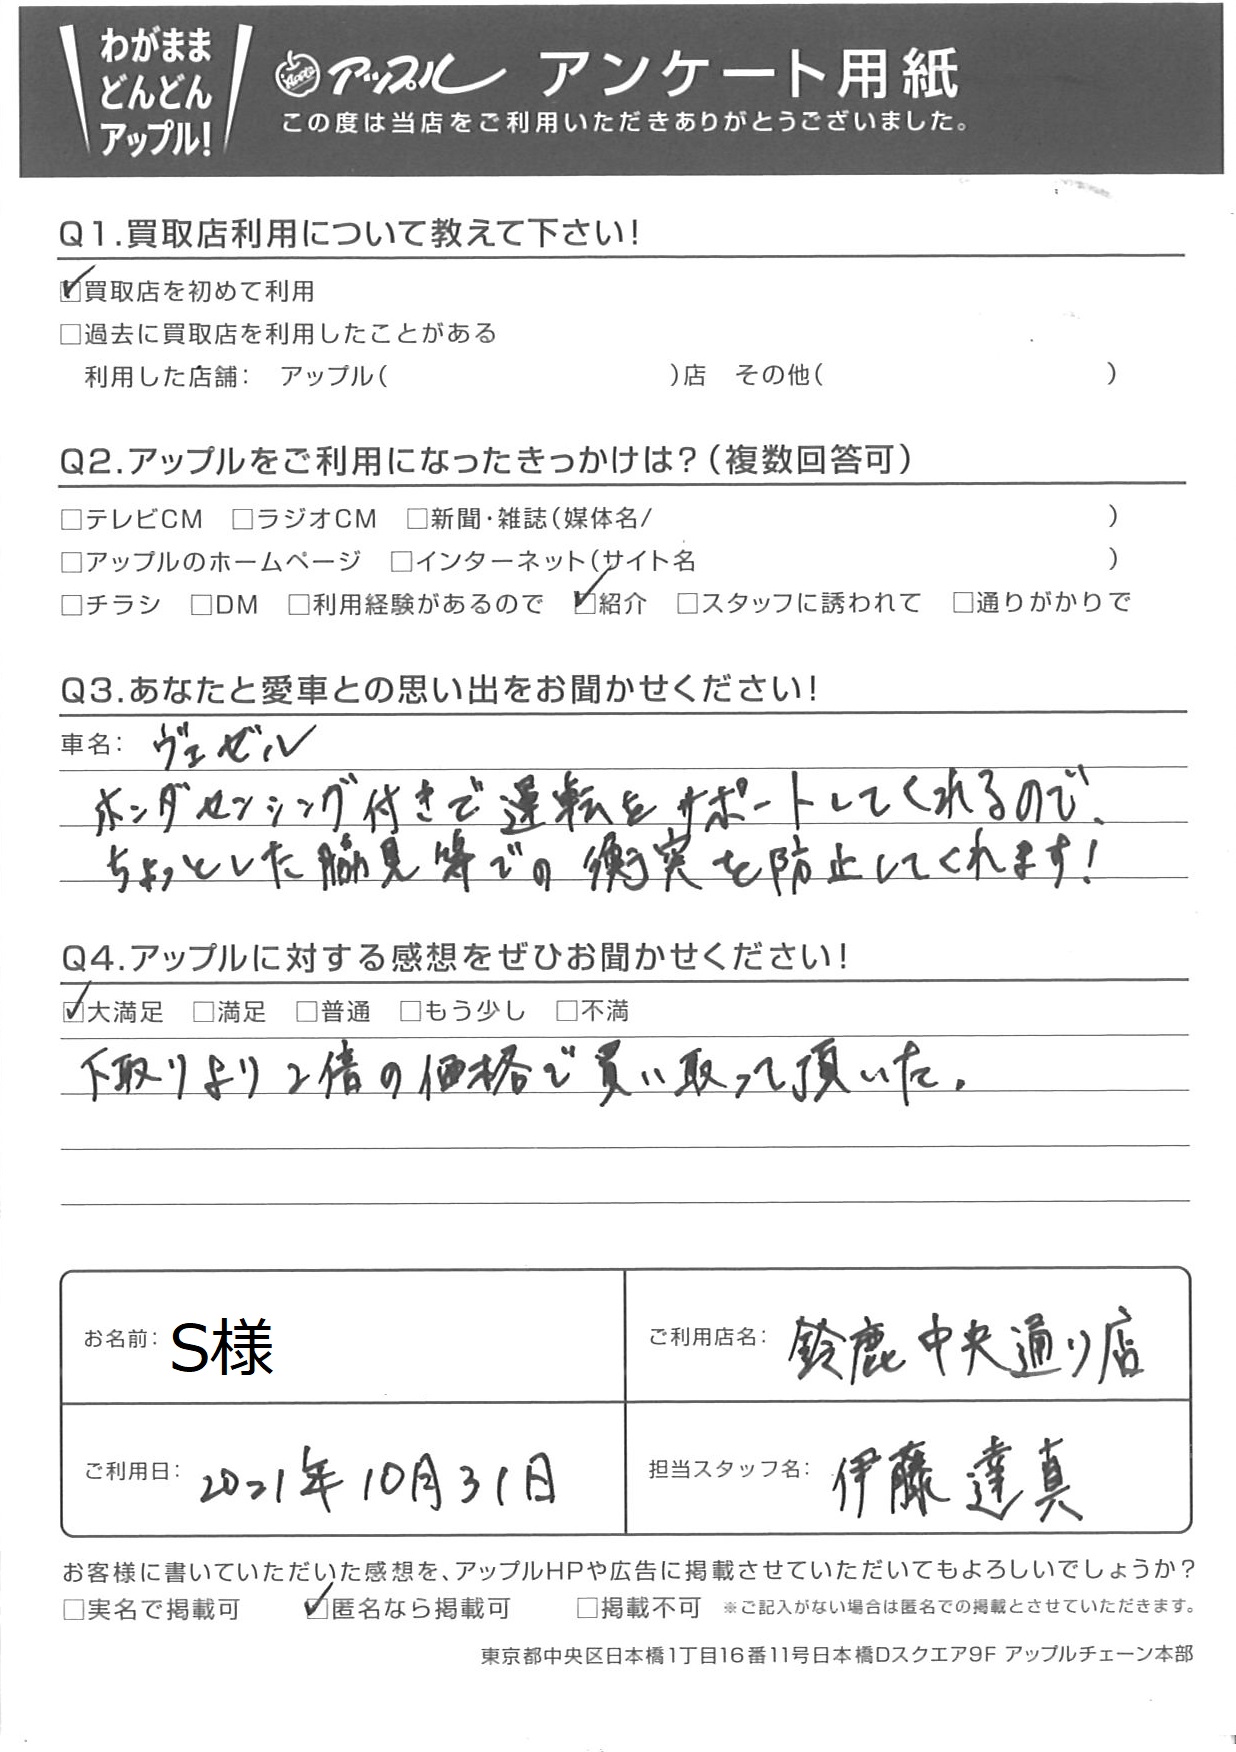 わがまま
どんどん
アップル!
アップル アンケート用紙
この度は当店をご利用いただきありがとうございました。
Q1.買取店利用について教えて下さい!
☑買取店を初めて利用
□過去に買取店を利用したことがある
利用した店舗: アップル( )店 その他( )
Q2.アップルをご利用になったきっかけは?(複数回答可)
□テレビCM □ラジオCM □新聞・雑誌(媒体名/ )
□アップルのホームページ □インターネット(サイト名 )
□チラシ □DM □利用経験があるので ☑紹介 □スタッフに誘われて □通りがかりで
Q3.あなたと愛車との思い出をお聞かせください!
車名: ヴェゼル
ホンダセンシング付きで運転をサポートしてくれるので、
ちょっとした脇見等での衝突を防止してくれます!
Q4.アップルに対する感想をぜひお聞かせください!
☑大満足 □満足 □普通 □もう少し □不満
下取りより2倍の価格で買い取って頂いた。
お名前: S様
ご利用店名: 鈴鹿中央通り店
ご利用日: 2021年10月31日
担当スタッフ名: 伊藤達真
お客様に書いていただいた感想を、アップルHPや広告に掲載させていただいてもよろしいでしょうか?
□実名で掲載可 ☑匿名なら掲載可 □掲載不可 ※ご記入がない場合は匿名での掲載とさせていただきます。
東京都中央区日本橋1丁目16番11号日本橋Dスクエア9F アップルチェーン本部